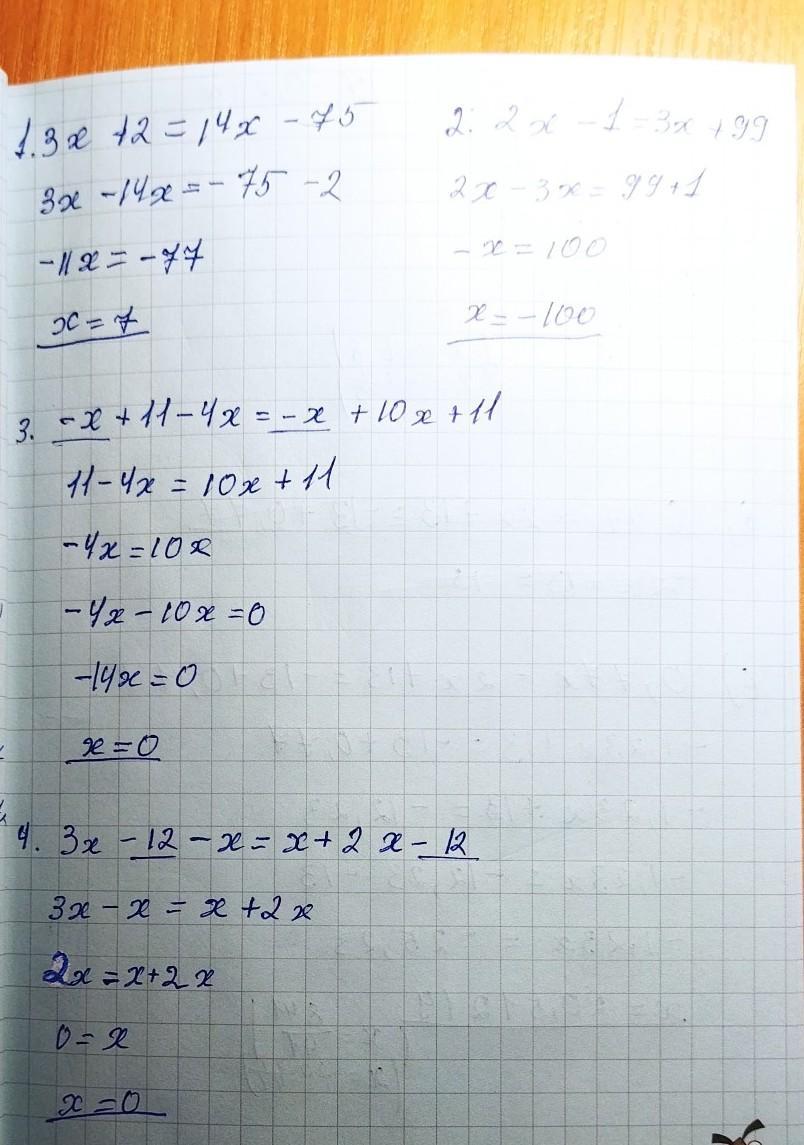 1. 3x +2 = 14x - 75
3x - 14x = - 75 - 2
-11x = -77
x = 7
2. 2x - 1 = 3x + 99
2x - 3x = 99 + 1
- x = 100
x = -100
3. -x + 11 - 4x = -x + 10x + 11
11 - 4x = 10x + 11
-4x = 10x
-4x - 10x = 0
-14x = 0
x = 0
4. 3x - 12 - x = x + 2x - 12
3x - x = x + 2x
2x = x + 2x
0 = x
x = 0